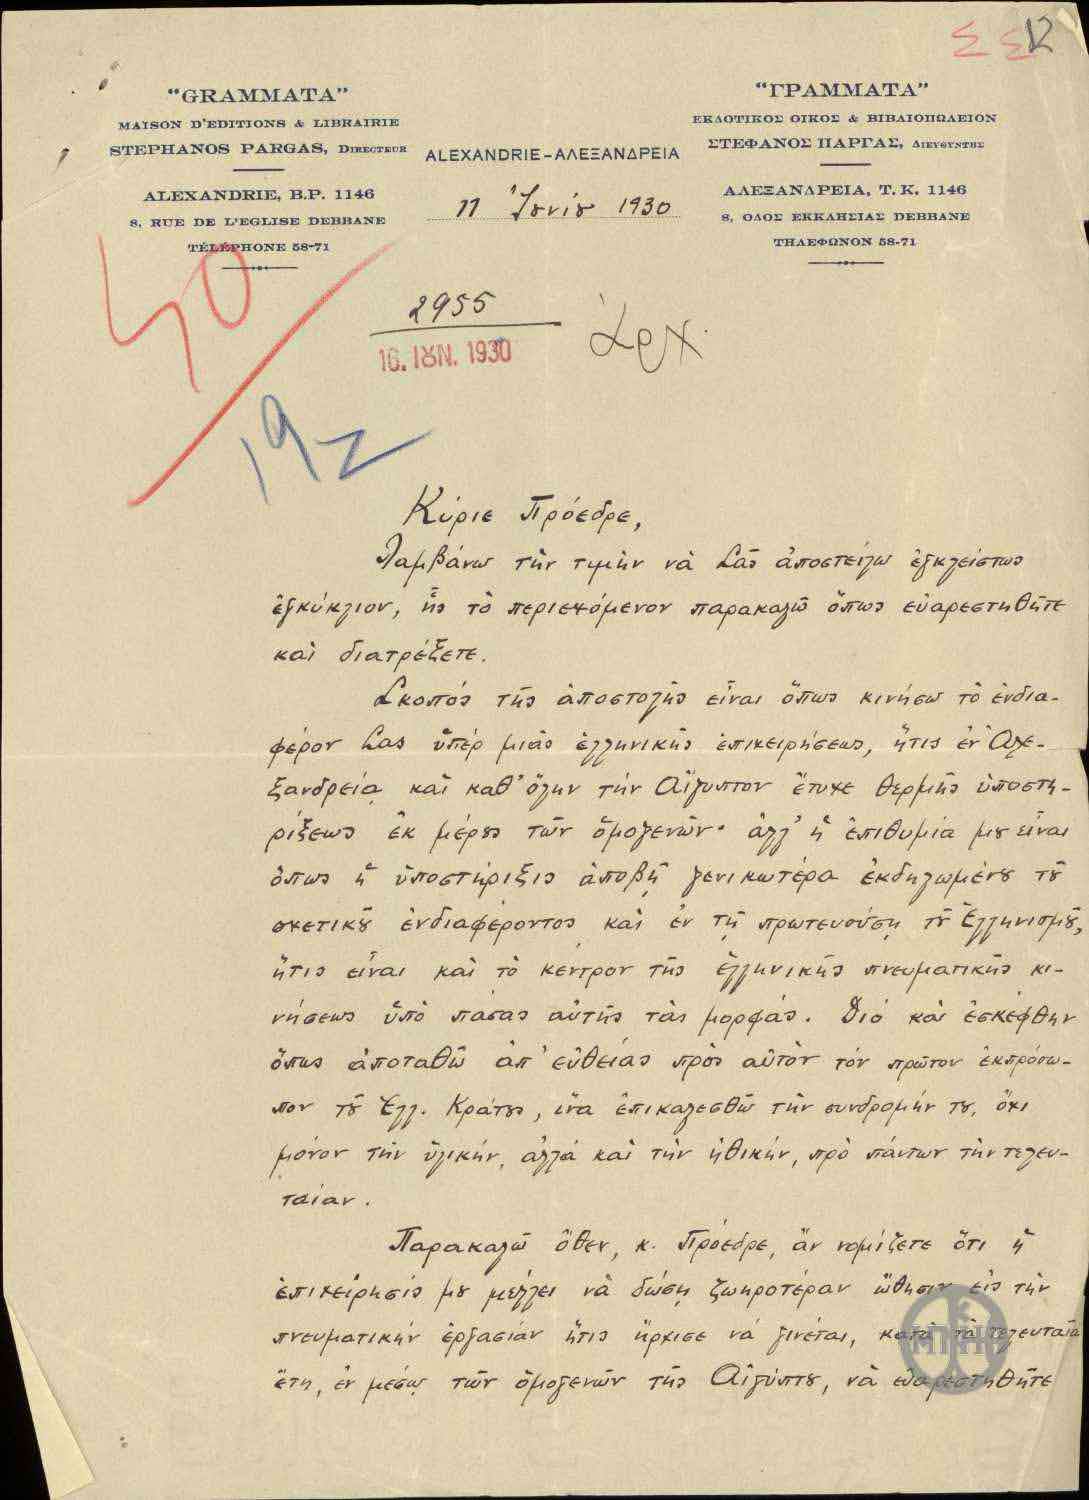 "GRAMMATA"
MAISON D'EDITIONS & LIBRAIRIE
STEPHANOS PARGAS, DIRECTEUR
ALEXANDRIE, B.P. 1146
8, RUE DE L'EGLISE DEBBANE
TÉLÉPHONE 58-71
ALEXANDRIE-ΑΛΕΞΑΝΔΡΕΙΑ
11 Ἰουνίου 1930
"ΓΡΑΜΜΑΤΑ"
ΕΚΔΟΤΙΚΟΣ ΟΙΚΟΣ & ΒΙΒΛΙΟΠΩΛΕΙΟΝ
ΣΤΕΦΑΝΟΣ ΠΑΡΓΑΣ, ΔΙΕΥΘΥΝΤΗΣ
ΑΛΕΞΑΝΔΡΕΙΑ, Τ.Κ. 1146
8, ΟΔΟΣ ΕΚΚΛΗΣΙΑΣ DEBBANE
ΤΗΛΕΦΩΝΟΝ 58-71
2955
16. ΙΟΥΝ. 1930
Ἀρχ.
192
Κύριε Πρόεδρε,
Λαμβάνω τὴν τιμὴν νὰ Σᾶς ἀποστείλω ἐγκλείστως
ἐγκύκλιον, ἧς τὸ περιεχόμενον παρακαλῶ ὅπως εὐαρεστηθῆτε
καὶ διατρέξετε.
Σκοπός τῆς ἀποστολῆς εἶναι ὅπως κινήσω τὸ ἐνδια-
φέρον Σας ὑπὲρ μιᾶς ἑλληνικῆς ἐπιχειρήσεως, ἥτις ἐν Ἀλε-
ξανδρείᾳ καὶ καθ' ὅλην τὴν Αἴγυπτον ἔτυχε θερμῆς ὑποστη-
ρίξεως ἐκ μέρους τῶν ὁμογενῶν· ἀλλ' ἡ ἐπιθυμία μου εἶναι
ὅπως ἡ ὑποστήριξις ἀποβῇ γενικωτέρα ἐκδηλωμένου τοῦ
σχετικοῦ ἐνδιαφέροντος καὶ ἐν τῇ πρωτευούσῃ τοῦ Ἑλληνισμοῦ,
ἥτις εἶναι καὶ τὸ κέντρον τῆς ἑλληνικῆς πνευματικῆς κι-
νήσεως ὑπὸ πάσας αὐτῆς τὰς μορφάς. Διὸ καὶ ἐσκέφθην
ὅπως ἀποταθῶ ἀπ' εὐθείας πρὸς αὐτὸν τόν πρῶτον ἐκπρόσω-
πον τοῦ Ἑλλ. Κράτους, ἵνα ἐπικαλεσθῶ τὴν συνδρομήν του, ὄχι
μόνον τὴν ὑλικήν, ἀλλά καὶ τὴν ἠθικήν, πρὸ πάντων τὴν τελευ-
ταίαν.
Παρακαλῶ ὅθεν, κ. Πρόεδρε, ἄν νομίζετε ὅτι ἡ
ἐπιχείρησίς μου μέλλει νὰ δώσῃ ζωηροτέραν ὤθησιν εἰς τὴν
πνευματικήν ἐργασίαν ἥτις ἤρχισε νά γίνεται, κατὰ τὰ τελευταῖα
ἔτη, ἐν μέσῳ τῶν ὁμογενῶν τῆς Αἰγύπτου, νὰ εὐαρεστηθῆτε